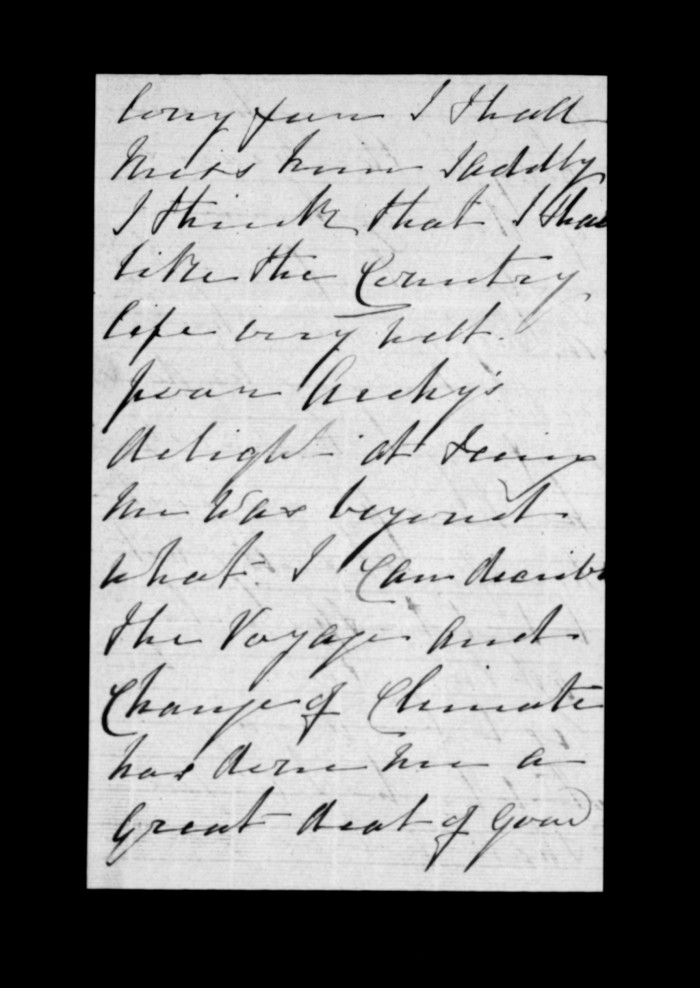 long for I shall
miss him sadly
I think that I shal
like the Country
life very well.
poor Archy's
delight at seeing
me was beyond
what I can describe
the Voyage and
Change of Climate
has done me a
great deal of good